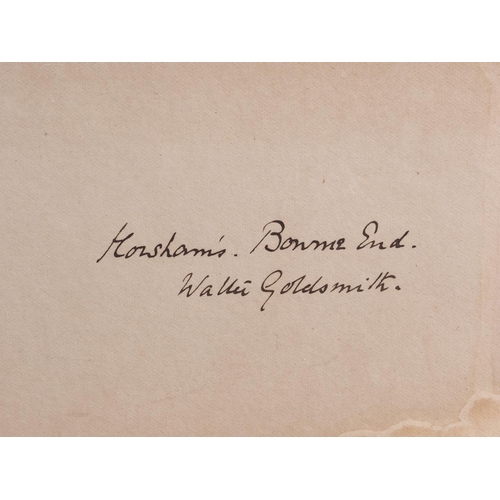 Horsham's. Bourne End.
Walter Goldsmith.